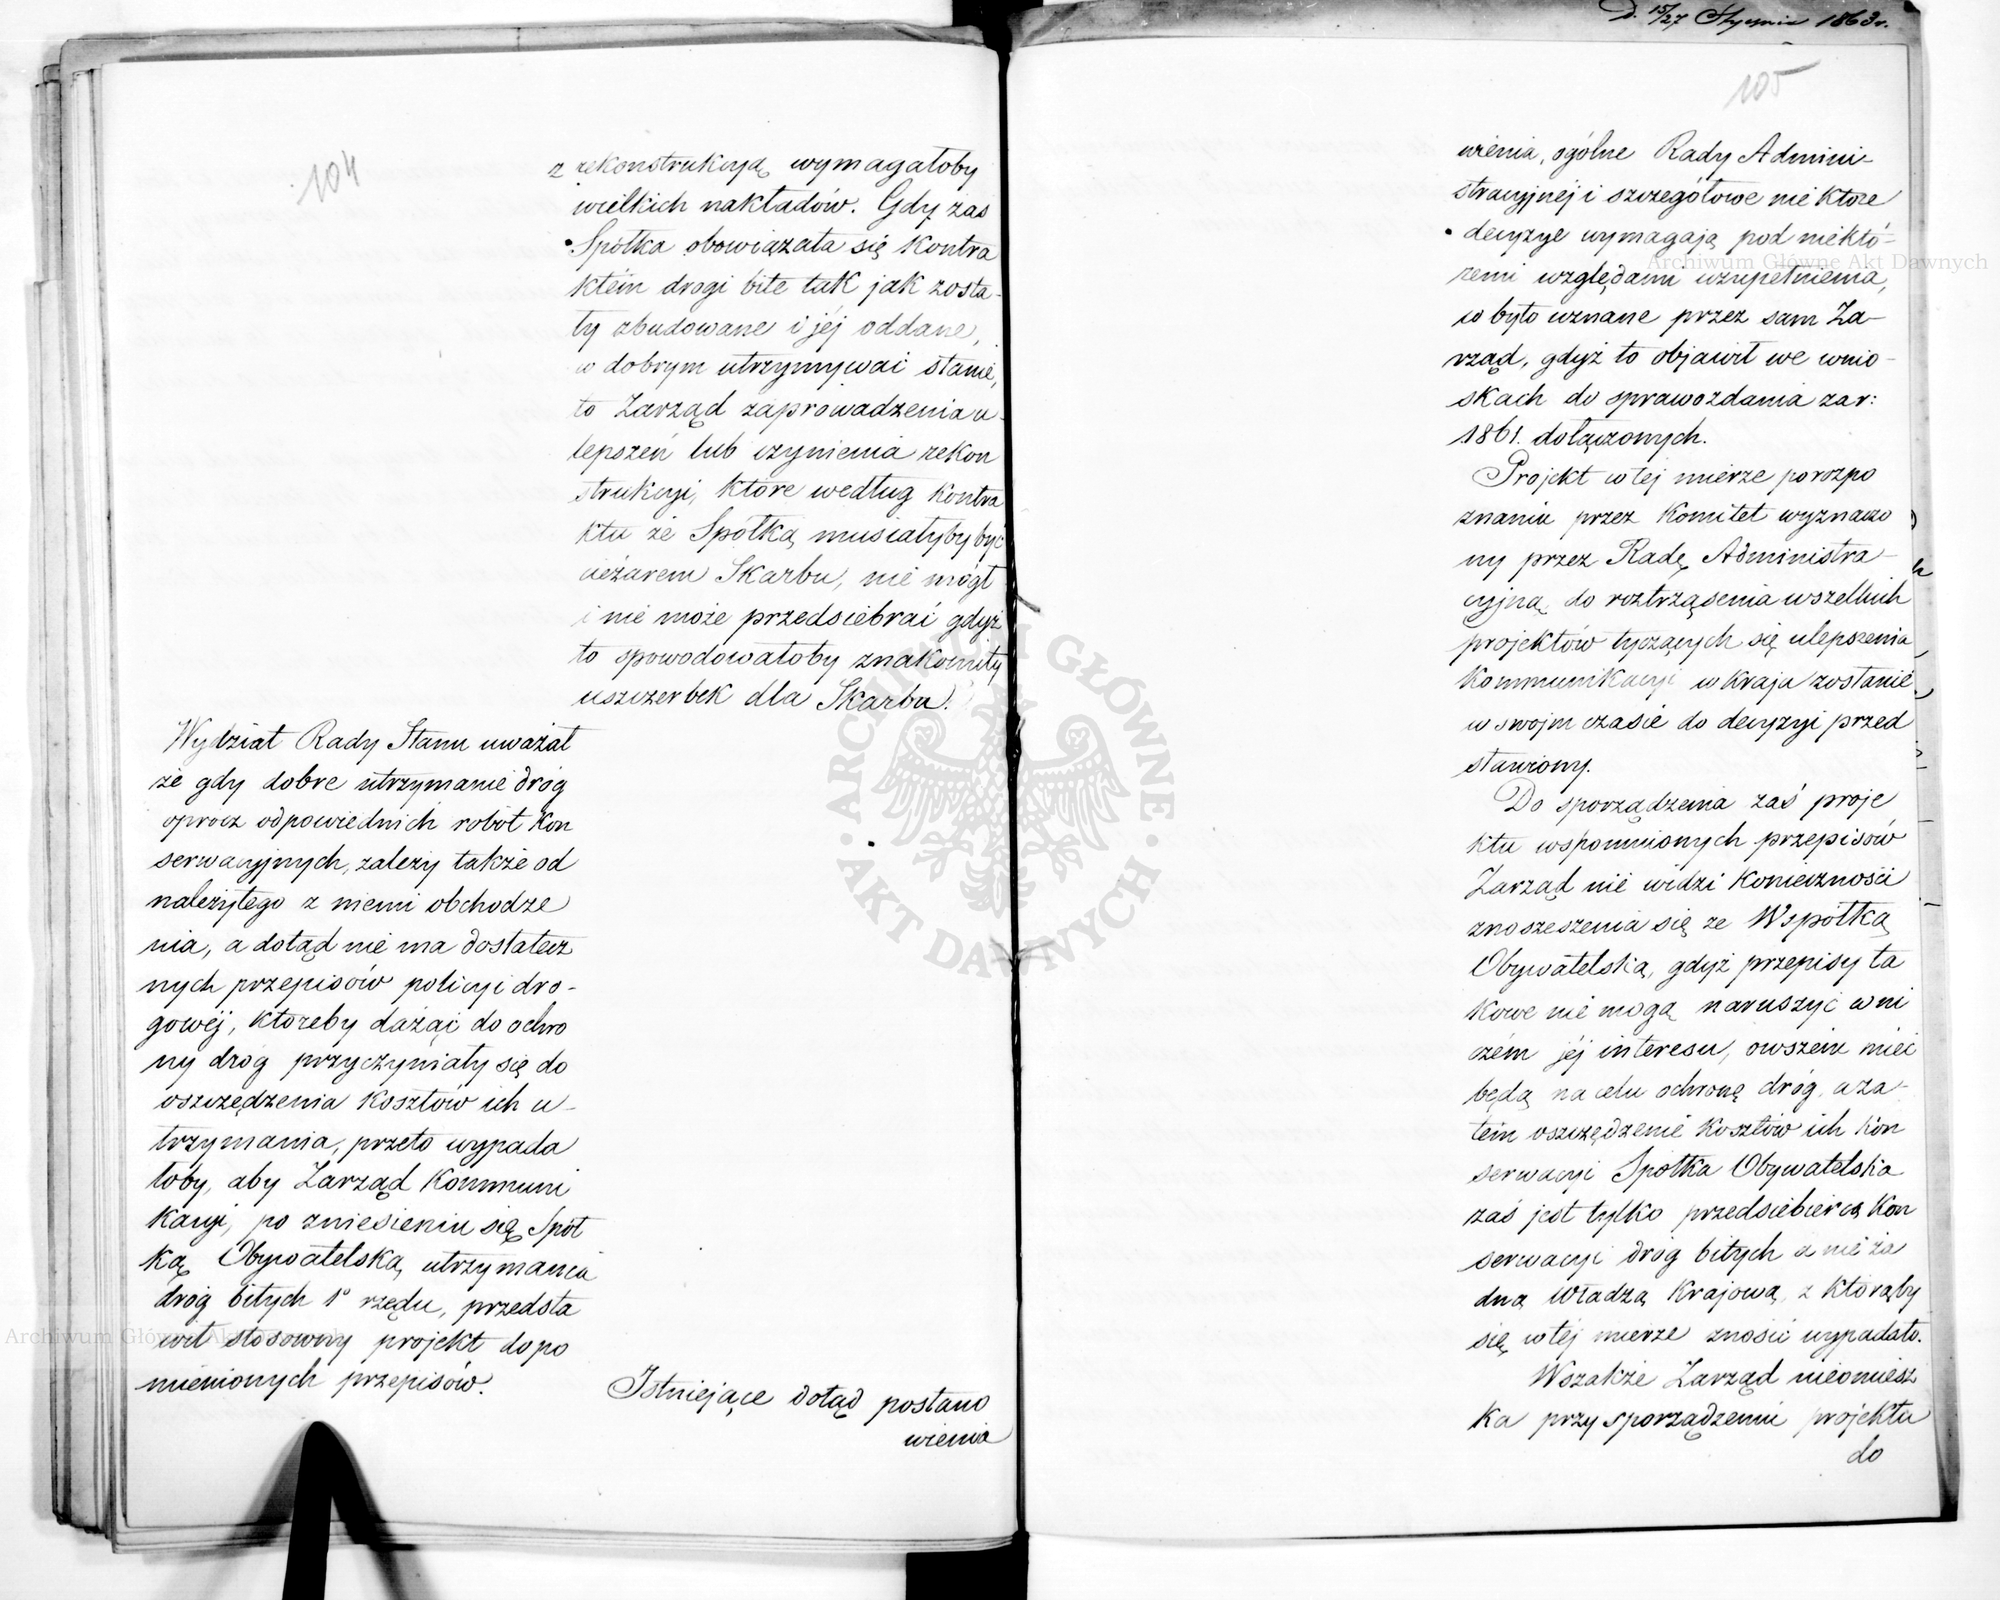 104
z rekonstrukcyą wymagałoby
wielkich nakładów. Gdy zaś
Spółka obowiązała się kontra
ktem drogi bite tak jak zosta-
ły zbudowane i jéj oddane,
w dobrym utrzymywać stanie,
to Zarząd zaprowadzenia u-
lepszeń lub czynienia rekon
strukcyi, które według kontra
ktu ze Spółką musiałyby być
ciężarem Skarbu, nie mógł
i nie może przedsiebrać gdyż
to spowodowałoby znakomity
uszczerbek dla Skarbu.
Wydział Rady Stanu uważał
że gdy dobre utrzymanie dróg
oprócz odpowiednich robót kon
serwacyjnych, zależy także od
należytego z niemi obchodze
nia, a dotąd nie ma dostatecz
nych przepisów policyi dro-
gowéj, któreby dążąc do ochro
ny dróg przyczyniały się do
oszczędzenia kosztów ich u-
trzymania, przeto wypada
łoby, aby Zarząd Kommuni
kacyi, po zniesieniu się Spół
ką Obywatelską utrzymania
dróg bitych 1º rzędu, przedsta
wił stosowny projekt dopo
mienionych przepisów.
Istniejące dotąd postano
wienia
D. 15/27 Stycznia 1863r.
105
wienia, ogólne Rady Admini-
stracyjnéj i szczegółowe nie które
decyzye wymagają pod niektó-
remi względami uzupełnienia,
co było uznane przez sam Za-
rząd, gdyż to objawił we wnio-
skach do sprawozdania zar:
1861. dołączonych.
Projekt w tej mierze po rozpo
znaniu przez Komitet wyznaczo
ny przez Radę Administra-
cyjną do roztrząsenia wszelkich
projektów tyczących się ulepszenia
Kommunikacyi w Kraju zostanie
w swojm czasie do decyzyi przed
stawiony.
Do sporządzenia zaś proje
ktu wspomnionych przepisów
Zarząd nie widzi konieczności
znoszeszenia się ze Wspólką
Obywatelską, gdyż przepisy ta
kowe nie mogą naruszyć w ni
czém jéj interesu, owszem mieć
będą na celu ochronę dróg, a za-
tem oszczędzenie kosztów ich kon
serwacyi Spółka Obywatelska
zaś jest tylko przedsiebiercą kon
serwacyi dróg bitych a nie ża
dną władzą Krajową, z którąby
się w téj mierze znosić wypadało.
Wszakże Zarząd nieomiesz
ka przy sporządzeniu projektu
do
Archiwum Główne Akt Dawnych
Archiwum Główne Akt Dawnych
ARCHIWUM GŁÓWNE · AKT DAWNYCH ·